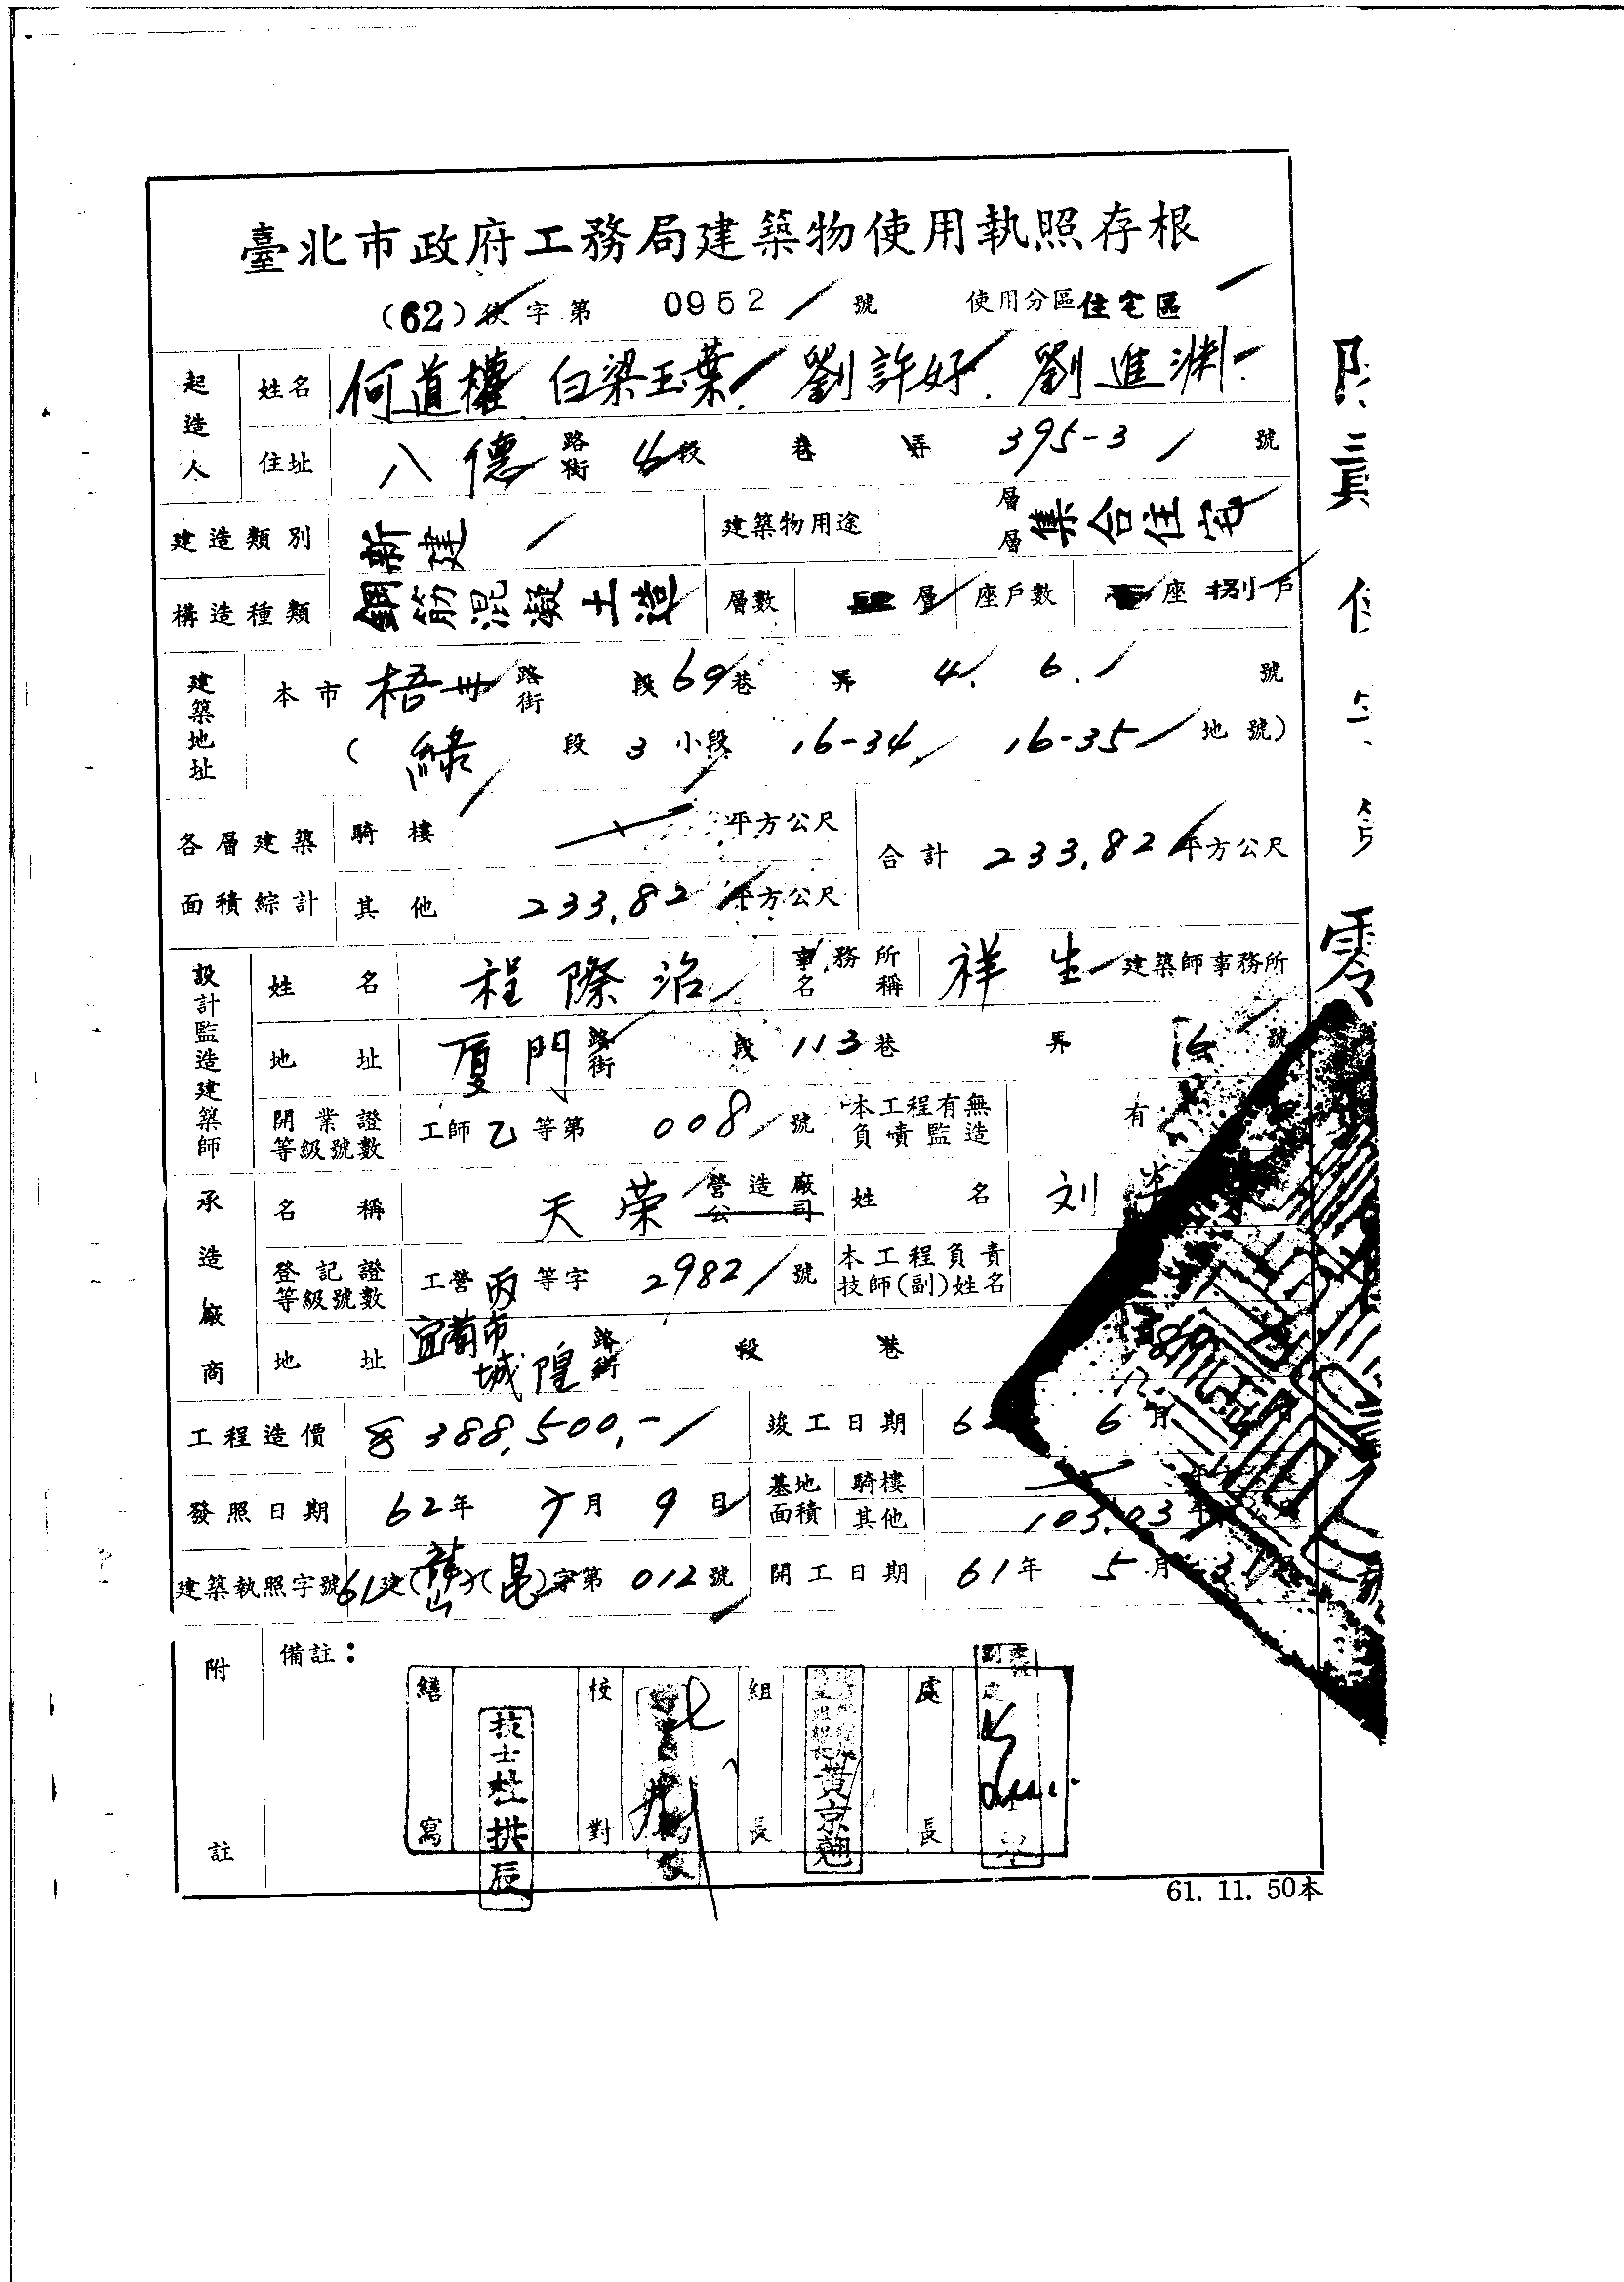 臺北市政府工務局建築物使用執照存根
(62)使字第 0952 號 使用分區住宅區
起造人 姓名 何道權 白梁玉葉 劉許好 劉進渊
住址 八德路街 4段 巷 弄 395-3 號
建造類別 新建 建築物用途 層層 集合住宅
構造種類 鋼筋混凝土造 層數 層 座戶數 座捌戶
建築地址 本市 梧州路街 段69巷 弄 4. 6. 號
( 綠 段 3 小段 16-34 16-35 地號)
各層建築面積綜計 騎樓 平方公尺 合計 233.82 平方公尺
其他 233.82 平方公尺
設計監造建築師 姓名 程際治 事務所名稱 祥生 建築師事務所
地址 厦門路街 段113巷 弄 號
開業證等級號數 工師乙等第 008 號 本工程有無負責監造 有
承造廠商 名稱 天荣 營造廠公司 姓名 刘
登記證等級號數 工營丙等字 2982 號 本工程負責技師(副)姓名
地址 宜蘭市城隍路街 段 巷
工程造價 388,500.- 竣工日期 6 6月
發照日期 62年 月 9日 基地面積 騎樓
其他 103.03
建築執照字號 61建( )( )字第 012 號 開工日期 61年 5月 31
附註 備註：
繕寫 技士杜拱辰 校對 組長 黃京翹 處長
61. 11. 50本
零